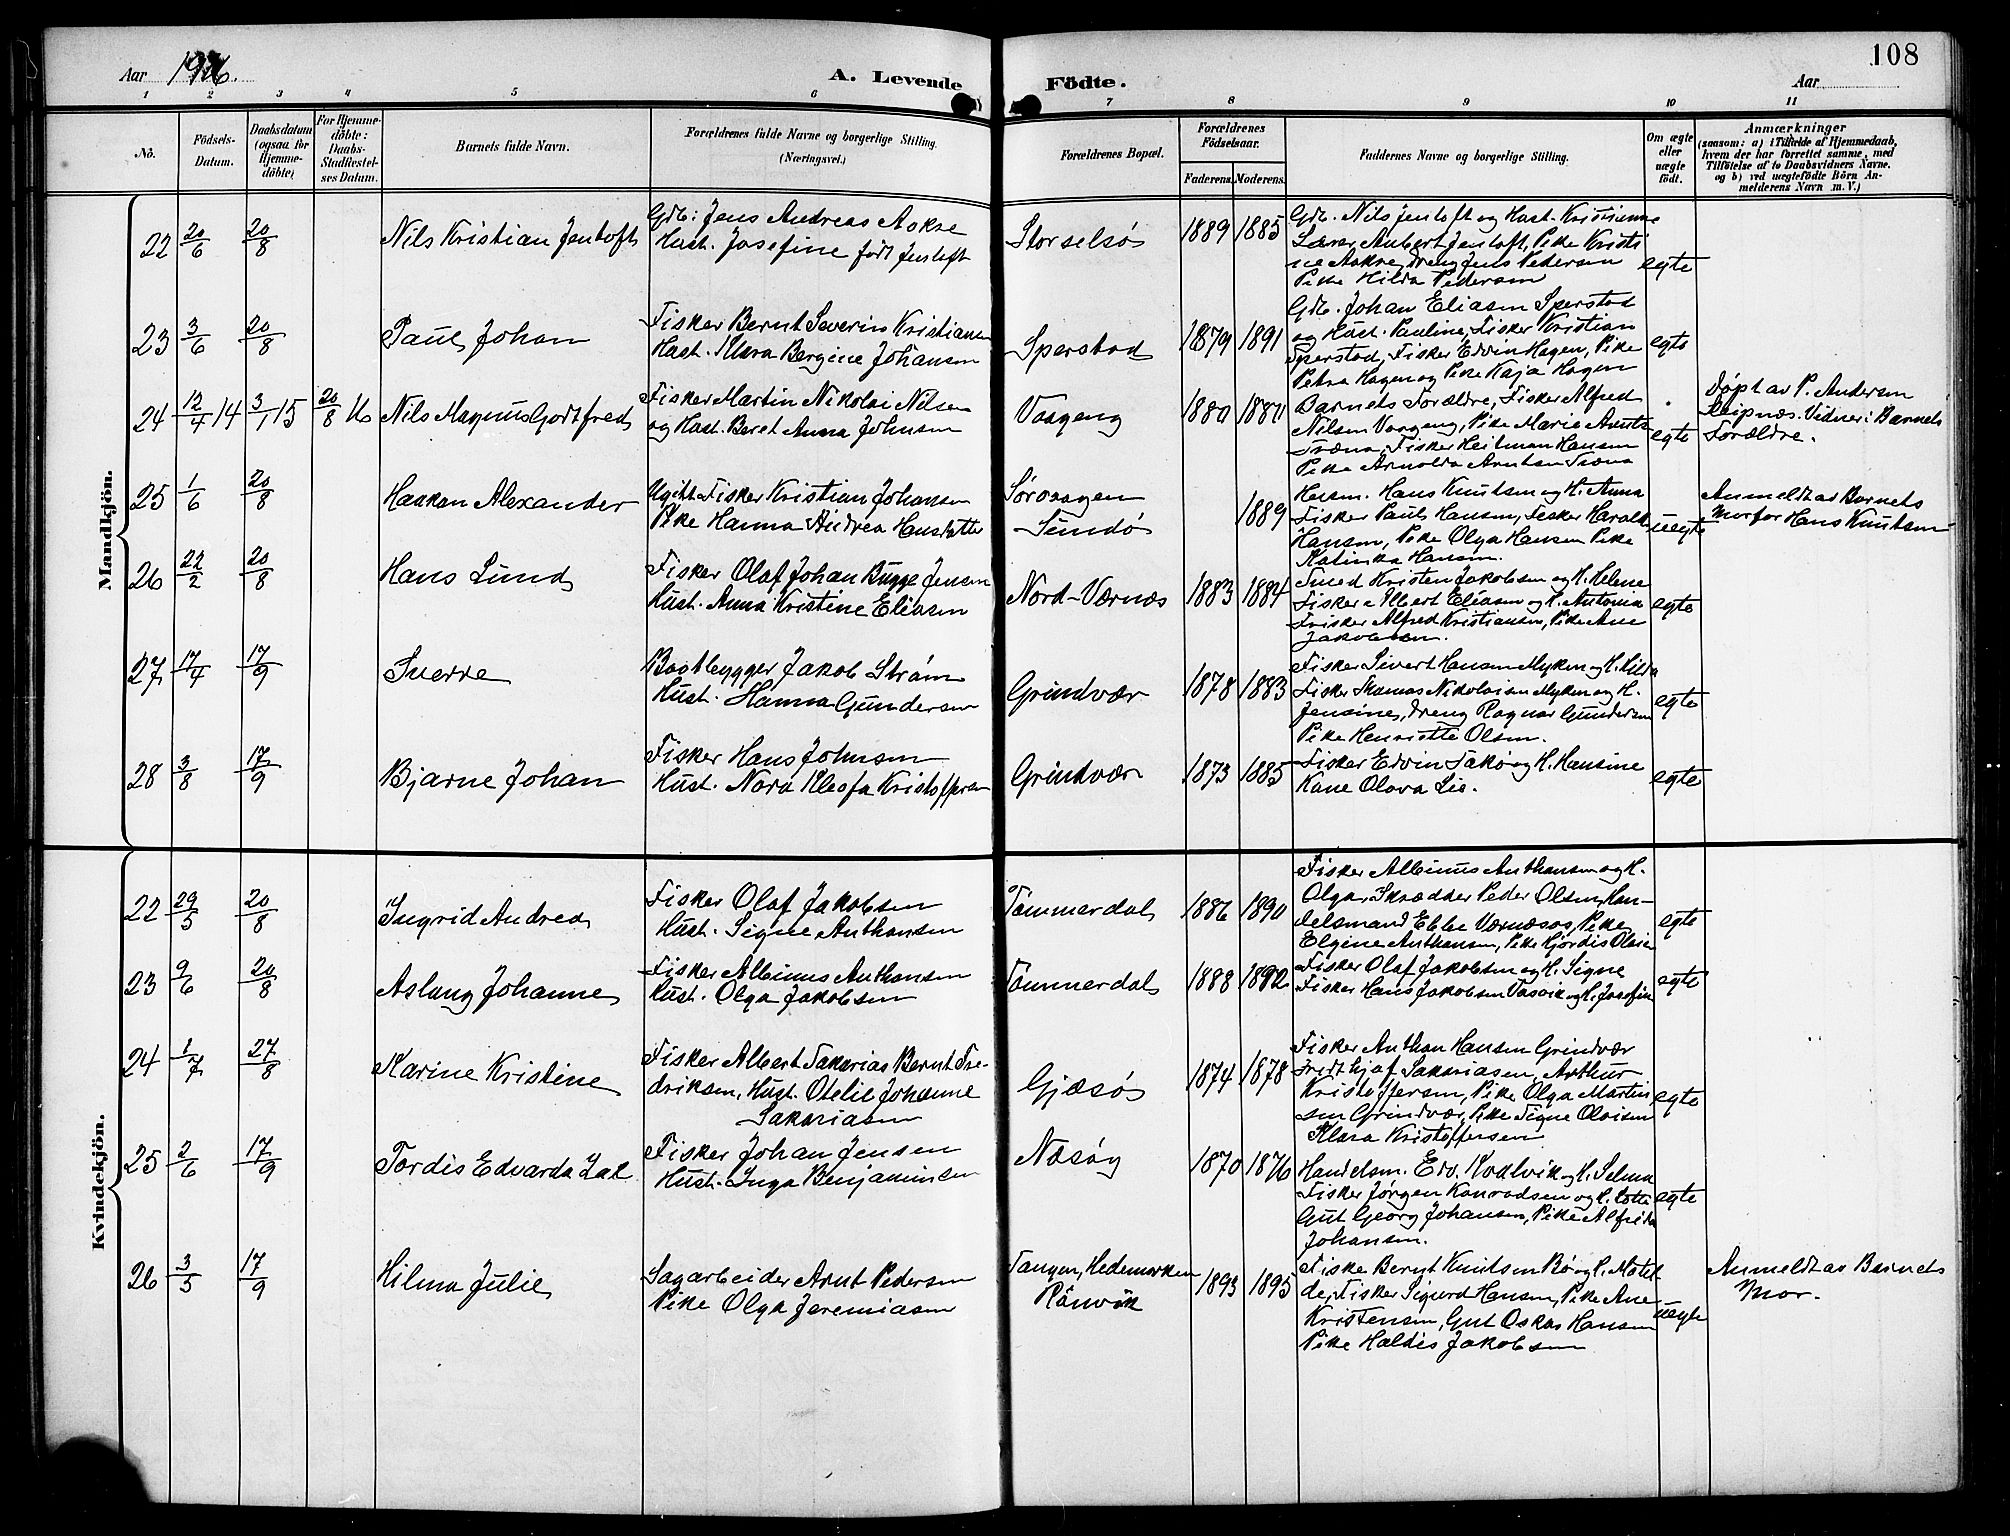 108
Aar 1916.
A. Levende
Födte.
Aar
1 2 3 4 5 6 7 8 9 10 11
No.
Födsels-
Datum.
Daabsdatum
(ogsaa for
Hjemme-
döbte)
For Hjemme-
döbte:
Daabs-
Stadfæstel-
ses Datum.
Barnets fulde Navn.
Forældrenes fulde Navne og borgerlige Stilling.
(Næringsvei.)
Forældrenes Bopæl.
Forældrenes
Födselsaar.
Faderens. Moderens.
Faddernes Navne og borgerlige Stilling.
Om ægte
eller
uægte
födt.
Anmærkninger
(saasom: a) i Tilfælde af Hjemmedaab,
hvem der har forrettet samme, med
Tilföielse af to Daabsvidners Navne.
og b) ved uægtefödte Börn An-
melderens Navn m. V.)
Mandkjön.
22 20/6 20/8 Nils Kristian Jentoft
Gdb: Jens Andreas Aakre
Hust. Josefine født Jentoft
Storselsø 1889 1885
Gdb. Nils Jentoft og Hust. Kristianne
Lærer Anbert Jentoft, Pike Kristi
ne Aakre, Dreng Jens Pedersen
Pike Hilda Pedersen
egte
23 3/6 20/8 Paul Johan
Fisker Bernt Severin Kristiansen
Hust. Klara Bergine Johansen
Sperstad 1879 1891
Gdb. Johan Eliasen Sperstad
og Hust. Pauline, Fisker Kristian
Sperstad, Fisker Edvin Hagen, Pike
Petra Hagen og Pike Kaja Hagen
egte
24 12/4 14 3/1 15 20/8 16 Nils Magnus Gottfred
Fisker Martin Nikolai Nilsen
og Hust. Beret Anna Johnsen
Vaageng 1880 1880
Barnets Forældre, Fisker Alfred
Nilsen Vaageng, Pike Marie Arnts
Træna, Fisker Heitman Hansen
Pike Arnolda Arntsen Træna
egte
Døpt av P. Andersen
Leipnæs. Vidner: Barnets
Forældre.
25 1/6 20/8 Haakon Alexander
Ugift Fisker Kristian Johansen
Pike Hanna Andrea Hansdatter
Sørvaagen
Sundø
1889
Husm. Hans Knutsen og H. Anna
Fisker Paul Hansen, Fisker Harald
Hansen, Pike Olga Hansen Pike
Katinka Hansen.
uegte
Anmeldt av Barnets
Morfar Hans Knutsen
26 22/2 20/8 Hans Lund
Fisker Olaf Johan Bugge Jensen
Hust. Anna Kristine Eliasen
Nord-Værnes 1883 1884
Smed Kristen Jakobsen og H. Helene
Fisker Albert Eliasen og H. Antonia
Fisker Alfred Kristiansen, Pike Ane
Jakobsen.
egte
27 17/4 17/9 Sverre
Baatbygger Jakob Strøm
Hust. Hanna Gundersen
Grindvær 1878 1883
Fisker Sivert Hansen Myken og H. Hilda
Fisker Thomas Nikolaisen Myken og H.
Jensine, Dreng Ragnar Gundersen
Pike Henriette Olsen.
egte
28 3/8 17/9 Bjarne Johan
Fisker Hans Johnsen
Hust. Nora Kleofa Kristoffersen
Grindvær 1873 1885
Fisker Edvin Sakø og H. Hansine
Kone Olava Lie.
egte
Kvindekjön.
22 29/5 20/8 Ingrid Andrea
Fisker Olaf Jakobsen
Hust. Signe Anthonsen
Tømmerdal 1886 1890
Fisker Albinus Anthonsen og H.
Olga, Skrædder Peder Olsen, Han-
delsmand Ebbe Værnesos, Pike
Elgine Anthonsen, Pike Hjørdis Olsen
egte
23 9/6 20/8 Aslaug Johanne
Fisker Albinus Anthonsen
Hust. Olga Jakobsen
Tømmerdal 1888 1892
Fisker Olaf Jakobsen og H. Signe
Fisker Hans Jakobsen Vasvik og H. Josefine
egte
24 1/7 27/8 Karine Kristine
Fisker Albert Sakarias Bernt Fre-
driksen, Hust. Otelie Johanne
Sakariasen
Gjæsø 1874 1878
Fisker Anthon Hansen Grindvær
Fridthjof Sakariasen, Arthur
Kristoffersen, Pike Olga Martin
sen Grindvær, Pike Signe Olaisen
Klara Kristoffersen
egte
25 2/6 17/9 Tordis Edvarda
Fisker Johan Jensen
Hust. Inga Benjaminsen
Næsøy 1870 1876
Handelsm. Edv. Kvalvik og H. Selma
Fisker Jørgen Konradsen og H. Lotte
Gut Georg Johansen, Pike Alfrida
Johansen.
egte
26 3/5 17/9 Hilma Julie
Sagarbeider Arnt Pedersen
Pike Olga Jeremiasen
Tangen, Hedemarken
Rånvik
1893 1895
Fisker Bernt Knutsen Bø og H. Matel
de, Fisker Sigurd Hansen, Pike Ane
Kristensen, Gut Oskar Hansen
Pike Haldis Jakobsen
uegte
Anmeldt av Barnets
Mor.